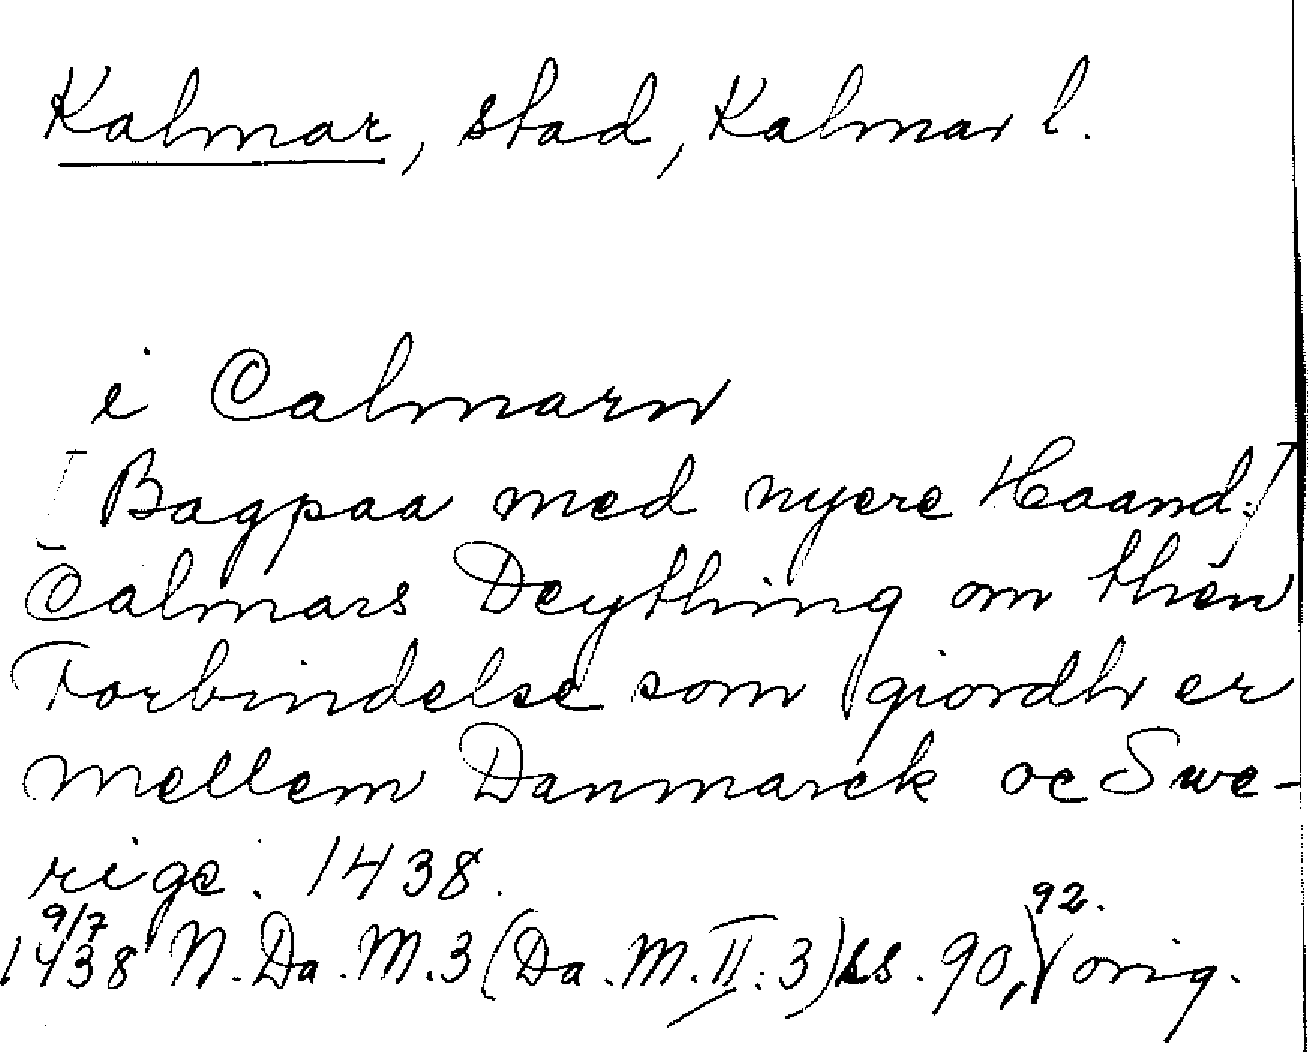 Kalmar, stad, Kalmar l.
i Calmarn
[Bagpaa med nyere Haand:]
Calmars Deything om then
Forbindelse som giordh er
mellem Danmarck oc Swe-
rige. 1438.
9/7 1438 N. Da. M. 3 (Da. M. II: 3) ss. 90, 92. orig.